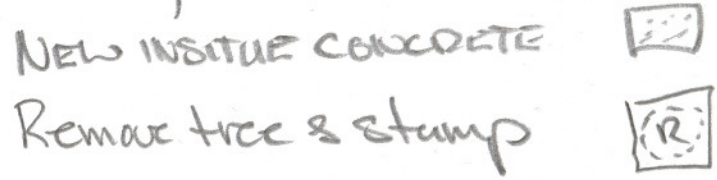 NEW INSITUE CONCRETE
Remove tree & stump R